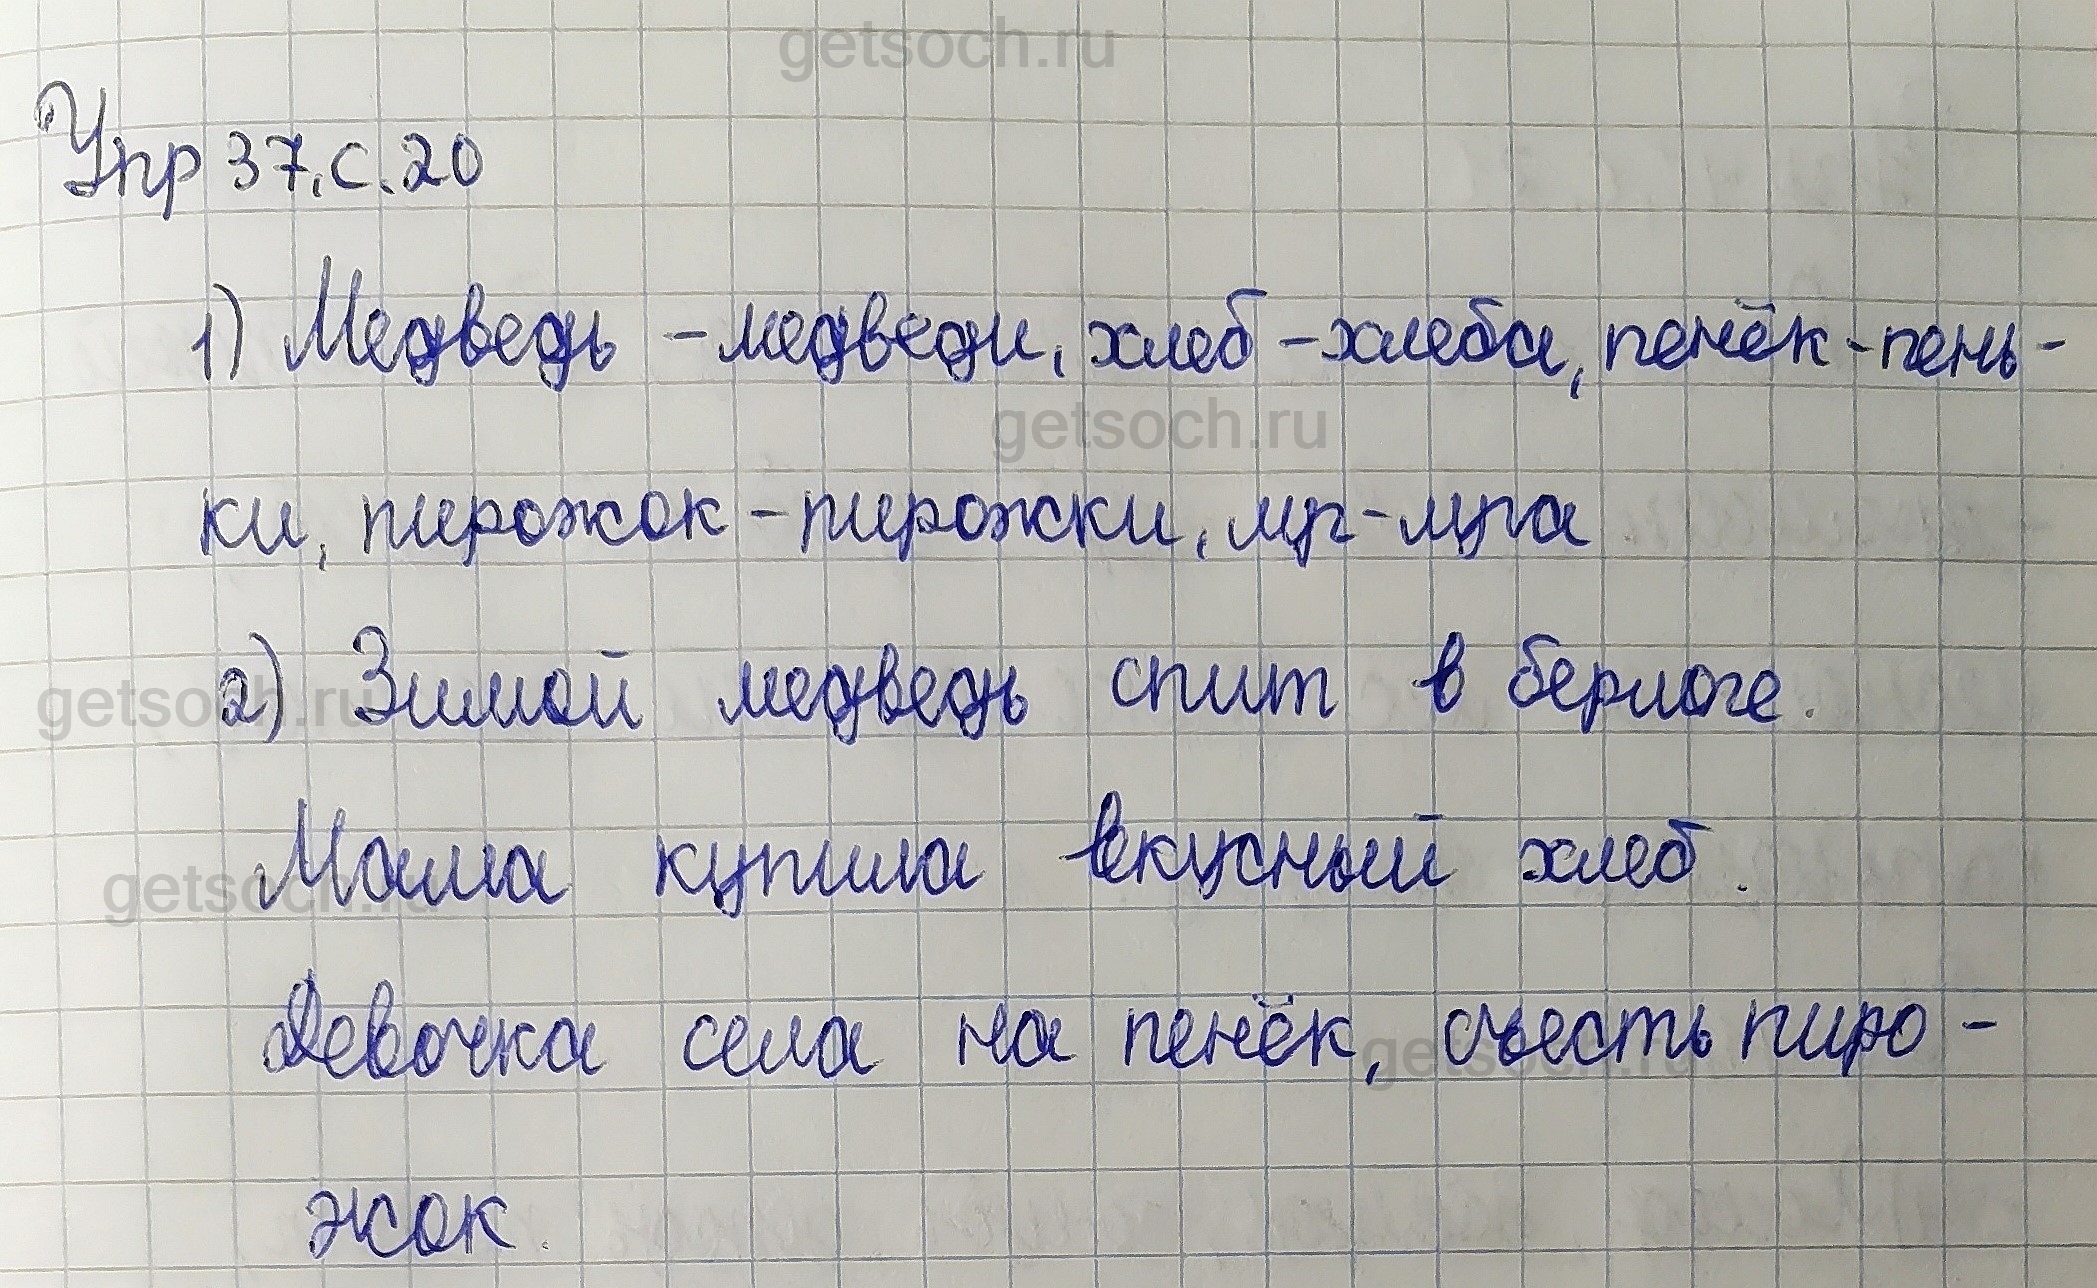 getsoch.ru
Упр 37. с. 20
1) Медведь - медведи, хлеб - хлеба, пенёк - пень-
getsoch.ru
ки, пирожок - пирожки, луг - луга
2) Зимой медведь спит в берлоге.
getsoch.ru
Мама купила вкусный хлеб.
getsoch.ru
Девочка села на пенёк, съесть пиро-
getsoch.ru
жок.